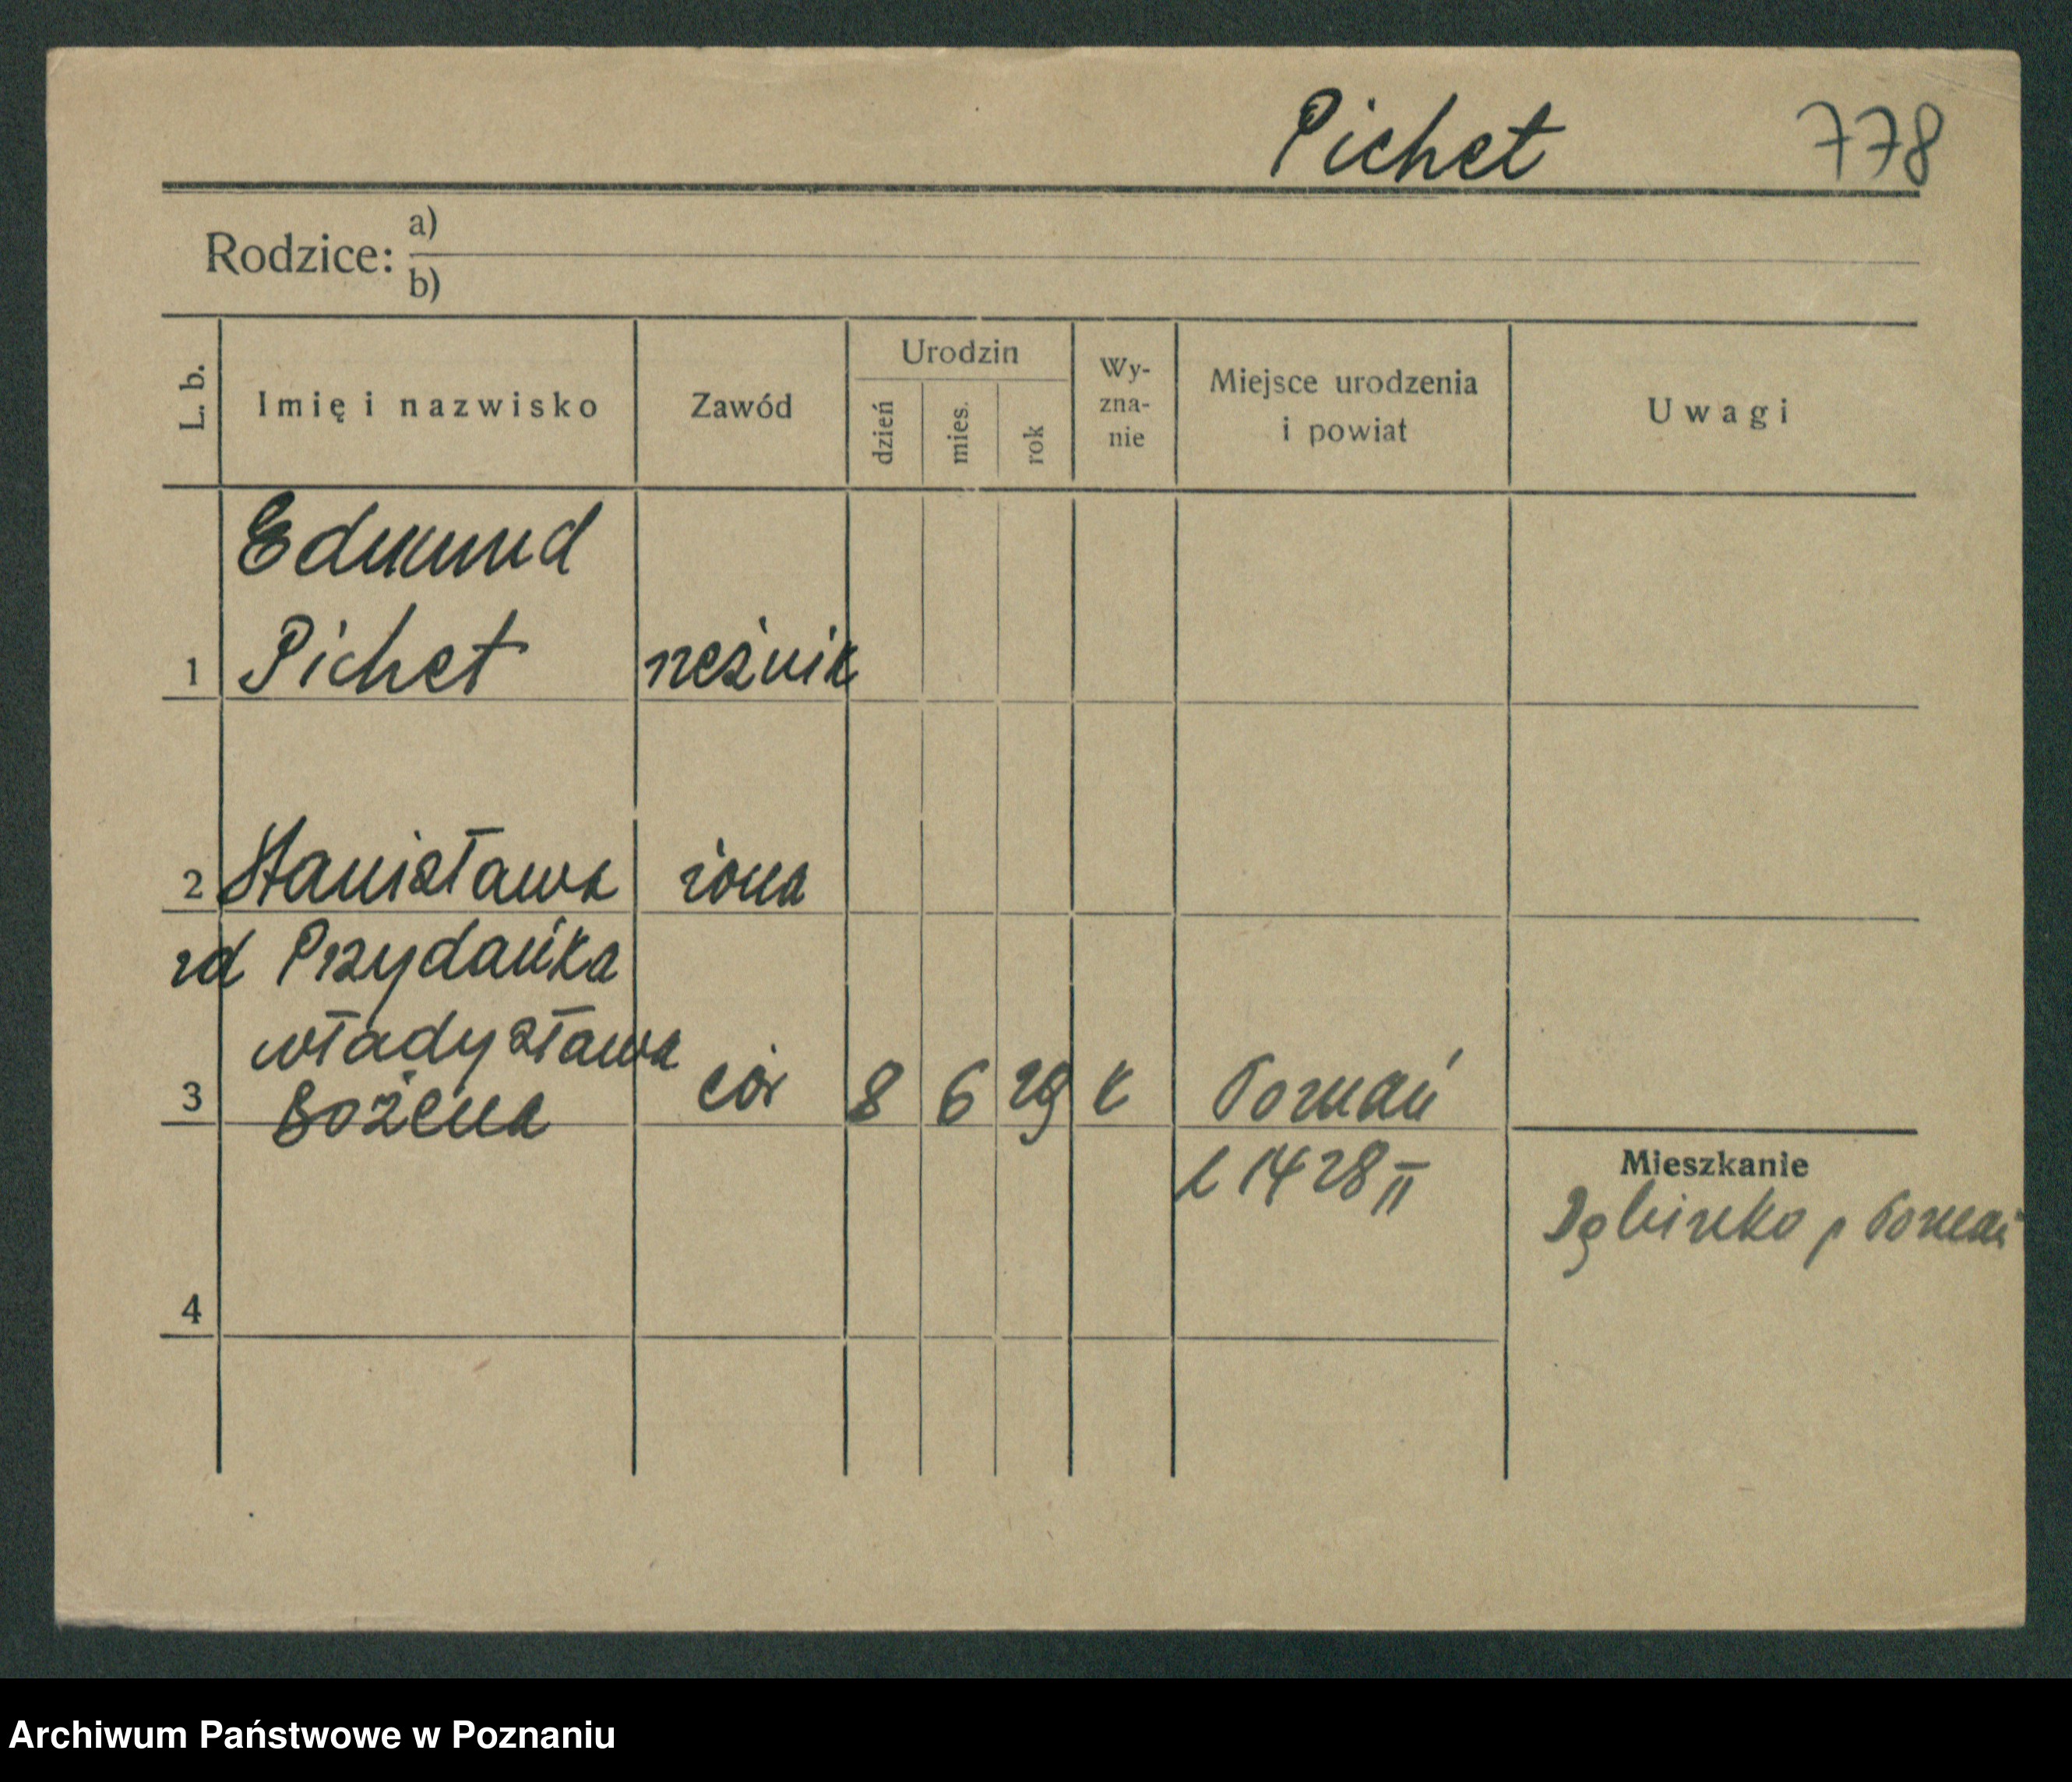 Pichet 778
Rodzice: a)
b)
L. b. Imię i nazwisko Zawód Urodzin dzień mies. rok Wy-zna-nie Miejsce urodzenia i powiat Uwagi
Edmund
1 Pichet rzeźnik
2 Stanisława żona
zd Przydańka
Władysława
3 Bożena cór 8 6 29 k Poznań
L 1428 II
Mieszkanie
p Poznań
4
Archiwum Państwowe w Poznaniu